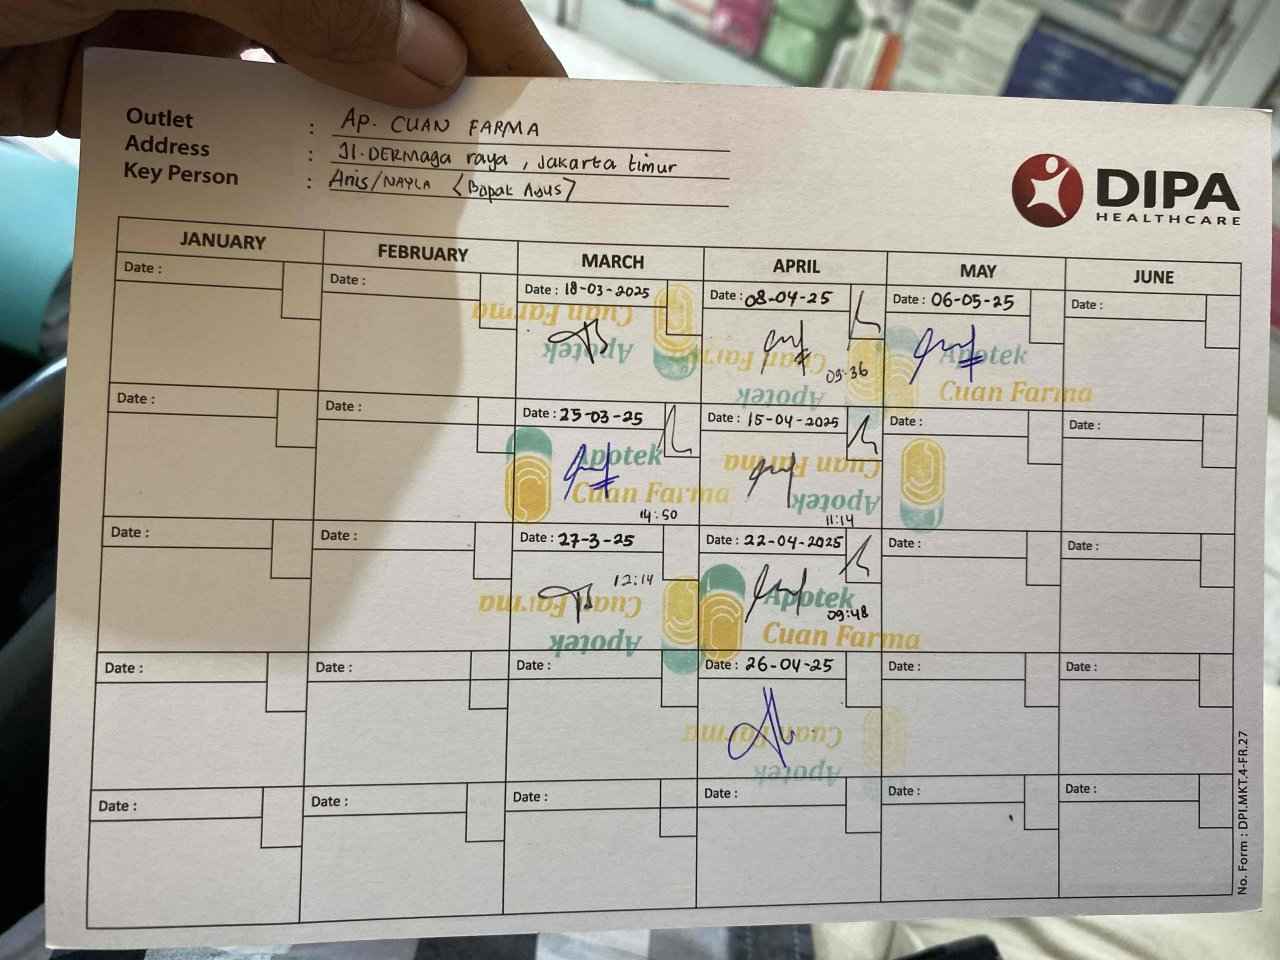 Outlet : Ap. CUAN FARMA
Address : Jl. DERMAGA raya, Jakarta timur
Key Person : Anis/NAYLA (Bapak Agus)
DIPA
HEALTHCARE
JANUARY FEBRUARY MARCH APRIL MAY JUNE
Date : Date : Date : 18-03-2025 Date : 08-04-25 Date : 06-05-25 Date :
Cuan Farma
Apotek
Cuan Farma
Apotek
09:36
Apotek
Cuan Farma
Date : Date : Date : 25-03-25 Date : 15-04-2025 Date : Date :
Apotek
Cuan Farma
14:50
Cuan Farma
Apotek
11:14
Date : Date : Date : 27-3-25 Date : 22-04-2025 Date : Date :
12:14
Cuan Farma
Apotek
Apotek
09:48
Cuan Farma
Date : Date : Date : Date : 26-04-25 Date : Date :
Cuan Farma
Apotek
Date : Date : Date : Date : Date : Date :
No. Form : DPI.MKT.4-FR.27